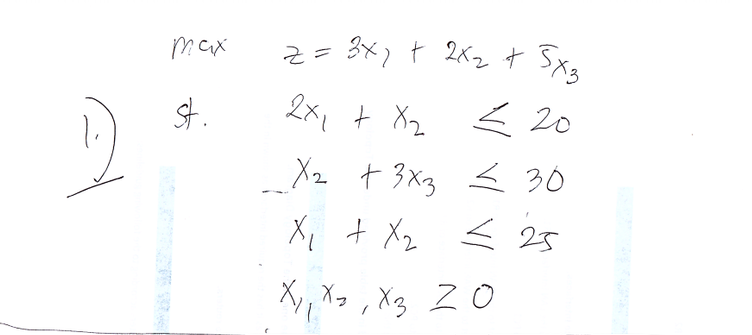 max z = 3x₁ + 2x₂ + 5x₃
1.) st. 2x₁ + x₂ ≤ 20
x₂ + 3x₃ ≤ 30
x₁ + x₂ ≤ 25
x₁, x₂, x₃ ≥ 0